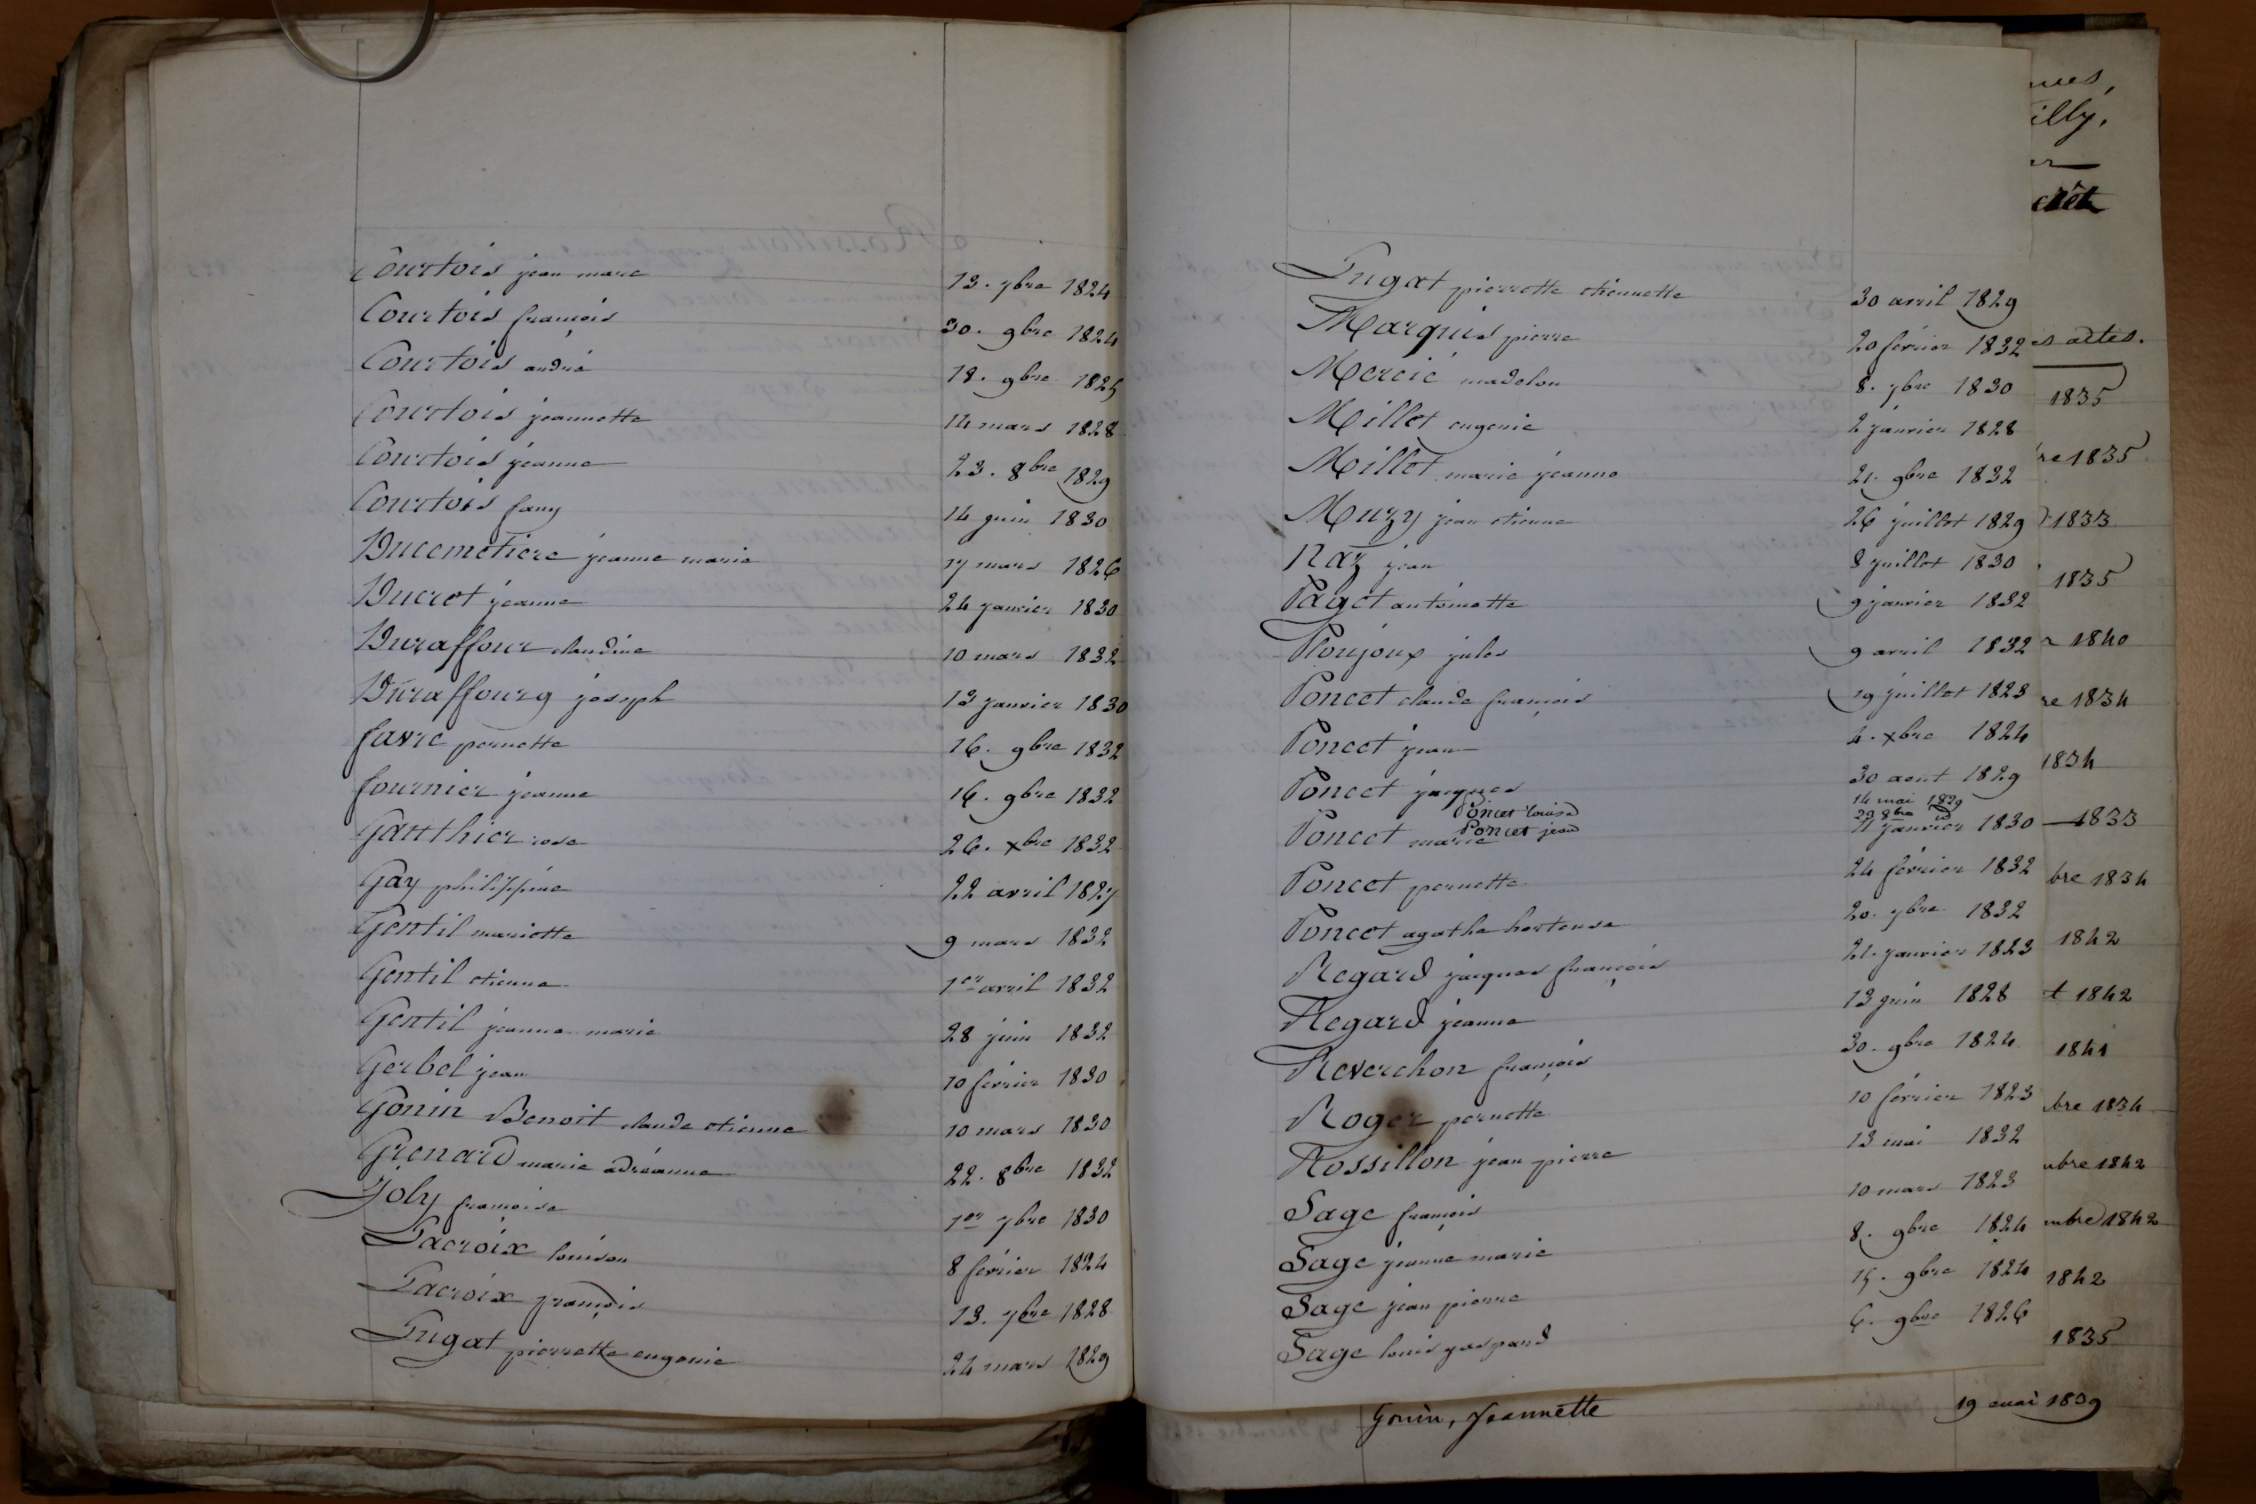 Courtois jean marc 13. 7bre 1824
Courtois françois 30. 9bre 1824
Courtois andré 18. 9bre 1825
Courtois jeannette 14 mars 1828
Courtois jeanne 23. 8bre 1829
Courtois fany 14 juin 1830
Ducimetiere jeanne marie 17 mars 1826
Ducrot jeanne 24 janvier 1830
Duraffour claudine 10 mars 1832
Duraffourg joseph 13 janvier 1830
favre pernette 16. 9bre 1832
fournier jeanne 16. 9bre 1832
Ganthier rose 26. xbre 1832
Gay philippine 22 avril 1827
Gentil mariette 9 mars 1832
Gentil etienne 1er avril 1832
Gentil jeanne marie 28 juin 1832
Gerbel jean 10 février 1830
Gonin Benoit claude etienne 10 mars 1830
Grenard marie adréanne 22. 8bre 1832
Joly françoise 1er 7bre 1830
Lacroix louison 8 février 1824
Lacroix françois 13. 7bre 1828
Lugat pierrette eugenie 24 mars 1829
Lugat pierrette etiennette 30 avril 1829
Marquis pierre 20 février 1832
Mercié madelon 8. 7bre 1830
Millet eugenie 2 janvier 1828
Millet marie jeanne 21. 9bre 1832
Muzy jean etienne 26 juillet 1829
Naz jean 8 juillet 1830
Paget antoinette 9 janvier 1832
Poujoux jules 9 avril 1832
Poncet claude françois 19 juillet 1823
Poncet jean 4. xbre 1824
Poncet jacques 30 aout 1829
Poncet louise 14 mai 1829
Poncet jean 29 8bre id
Poncet marie 11 janvier 1830
Poncet pernette 24 février 1832
Poncet agathe hortense 20. 7bre 1832
Regard jacques françois 21. janvier 1823
Regard jeanne 13 juin 1828
Reverchon françois 30. 9bre 1824
Roger pernette 10 février 1823
Rossillon jean pierre 13 mai 1832
Sage françois 10 mars 1823
Sage jeanne marie 8. 9bre 1824
Sage jean pierre 15. 9bre 1824
Sage louis gaspard 6. 9bre 1826
ues,
illy,
er
crêt
es actes.
1835
re 1835
1833
1835
1840
re 1834
1834
1833
bre 1834
1842
t 1842
1841
bre 1834
mbre 1842
mbre 1842
1842
1835
Gonin, Jeannette 19 mai 1839